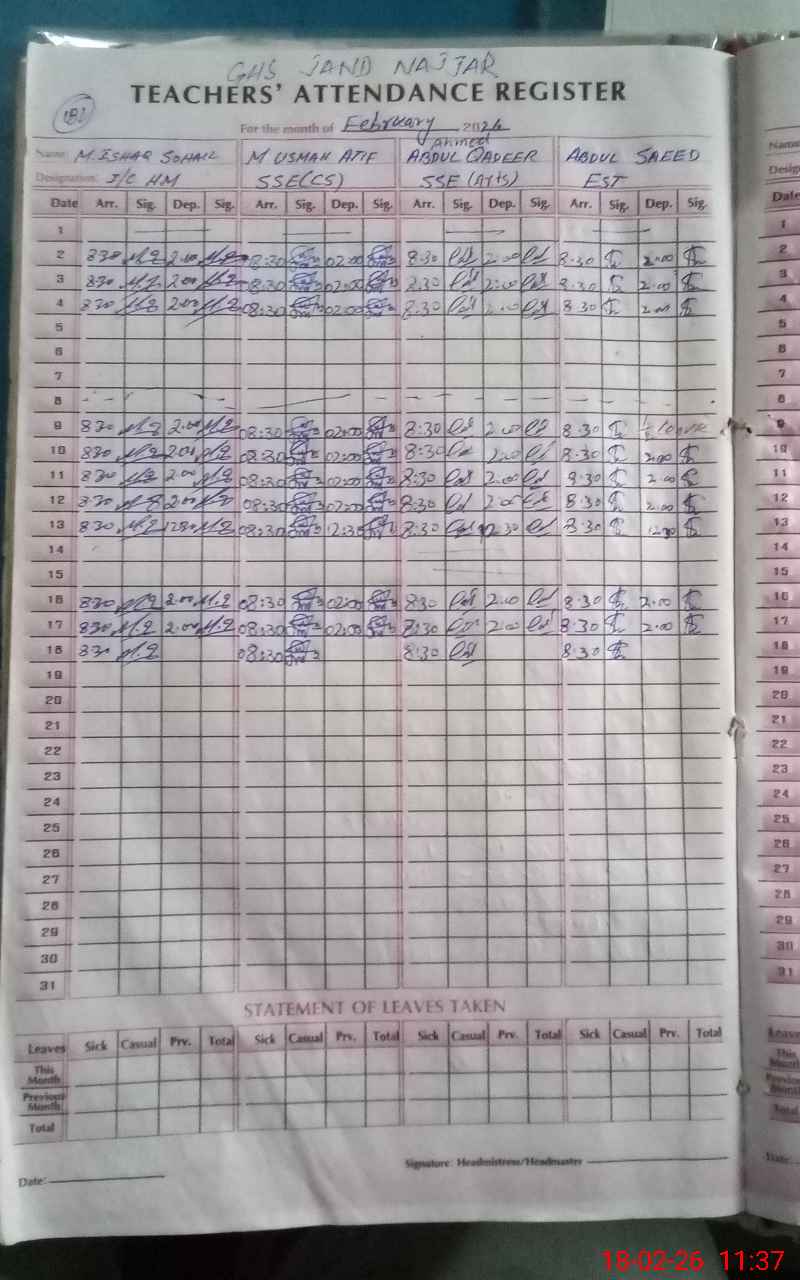 GHS JAND NAJJAR
TEACHERS' ATTENDANCE REGISTER
182
For the month of February 2026
Name: M. ISHAQ SOHAIL M USMAN ATIF ABDUL Ahmed QADEER ABDUL SAEED
Designation: I/C HM SSE(CS) SSE (Arts) EST
Date Arr. Sig. Dep. Sig. Arr. Sig. Dep. Sig. Arr. Sig. Dep. Sig. Arr. Sig. Dep. Sig.
1
2 830 2.00 08:30 02:00 8:30 2.00 8.30 2.00
3 830 2.00 08:30 02:00 8:30 2:00 8.30 2.00
4 830 2.00 08:30 02:00 8:30 2:00 8.30 2.00
5
6
7
8
9 830 2.00 08:30 02:00 8:30 2.00 8.30 1/2 leave
10 830 2.00 08:30 02:00 8:30 2.00 8.30 2.00
11 830 2.00 08:30 02:00 8:30 2.00 8.30 2.00
12 830 2.00 08:30 02:00 8:30 2.00 8.30 2.00
13 830 1230 08:30 12:30 8:30 12.30 8.30 12.30
14
15
16 830 2.00 08:30 02:00 8:30 2.00 8.30 2.00
17 830 2.00 08:30 02:00 8:30 2.00 8.30 2.00
18 830 08:30 8:30 8.30
19
20
21
22
23
24
25
26
27
28
29
30
31
STATEMENT OF LEAVES TAKEN
Leaves Sick Casual Prv. Total Sick Casual Prv. Total Sick Casual Prv. Total Sick Casual Prv. Total
This Month
Previous Month
Total
Signature: Headmistress/Headmaster
Date:
18-02-26 11:37